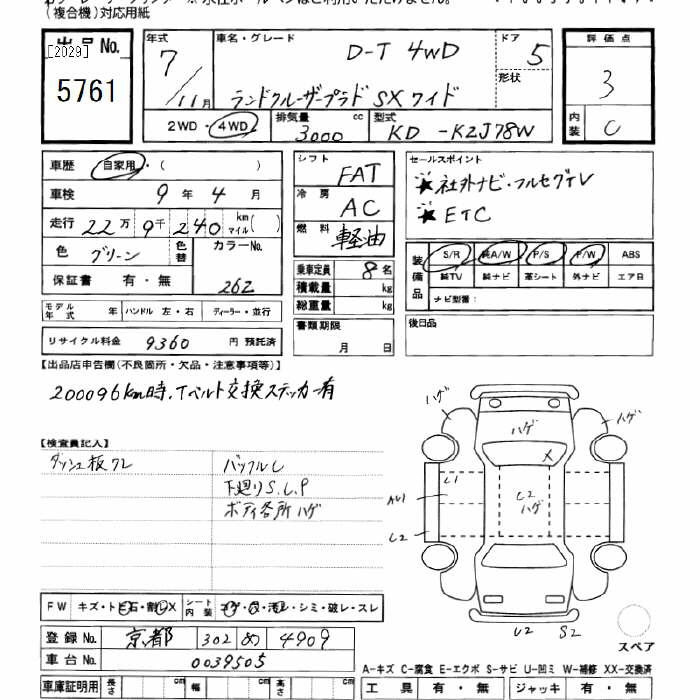 (複合機)対応用紙
出品No.
[2029]
5761
年式 7/11月
車名・グレード D-T 4WD
ランドクルーザープラド SX ワイド
ドア 5
形状
評価点 3
内装 C
2WD・4WD
排気量 3000 cc
型式 KD-KZJ78W
車歴 自家用・( )
車検 9年4月
走行 22万9千240 km マイル( )
色 グリーン
色替
カラーNo. 262
保証書 有・無
モデル年式 年
ハンドル 左・右
ディーラー・並行
リサイクル料金 9360 円 預託済
シフト FAT
冷房 AC
燃料 軽油
乗車定員 8名
積載量 kg
総重量 kg
書類期限
月 日
セールスポイント
★社外ナビ・フルセグTV
★ETC
装備品
S/R 純A/W P/S P/W ABS
純TV 純ナビ 革シート 外ナビ エアB
ナビ型番:
後日品
【出品店申告欄(不良箇所・欠品・注意事項等)】
200096km時.Tベルト交換ステッカー有
【検査員記入】
ダッシュ板ワレ
バックルL
下廻りS.C.P
ボディ各所ハゲ
ハゲ
ハゲ
ハゲ
X
L1
C2
ハゲ
AU1
L2
U2 S2
スペア
FW キズ・トビ石・割レX
シート内装 コゲ・穴・汚レ・シミ・破レ・スレ
登録No. 京都 302 め 4909
車台No. 0039505
車庫証明用 長さ cm 幅 cm 高さ cm
A-キズ C-腐食 E-エクボ S-サビ U-凹ミ W-補修 XX-交換済
工具 有・無 ジャッキ 有・無